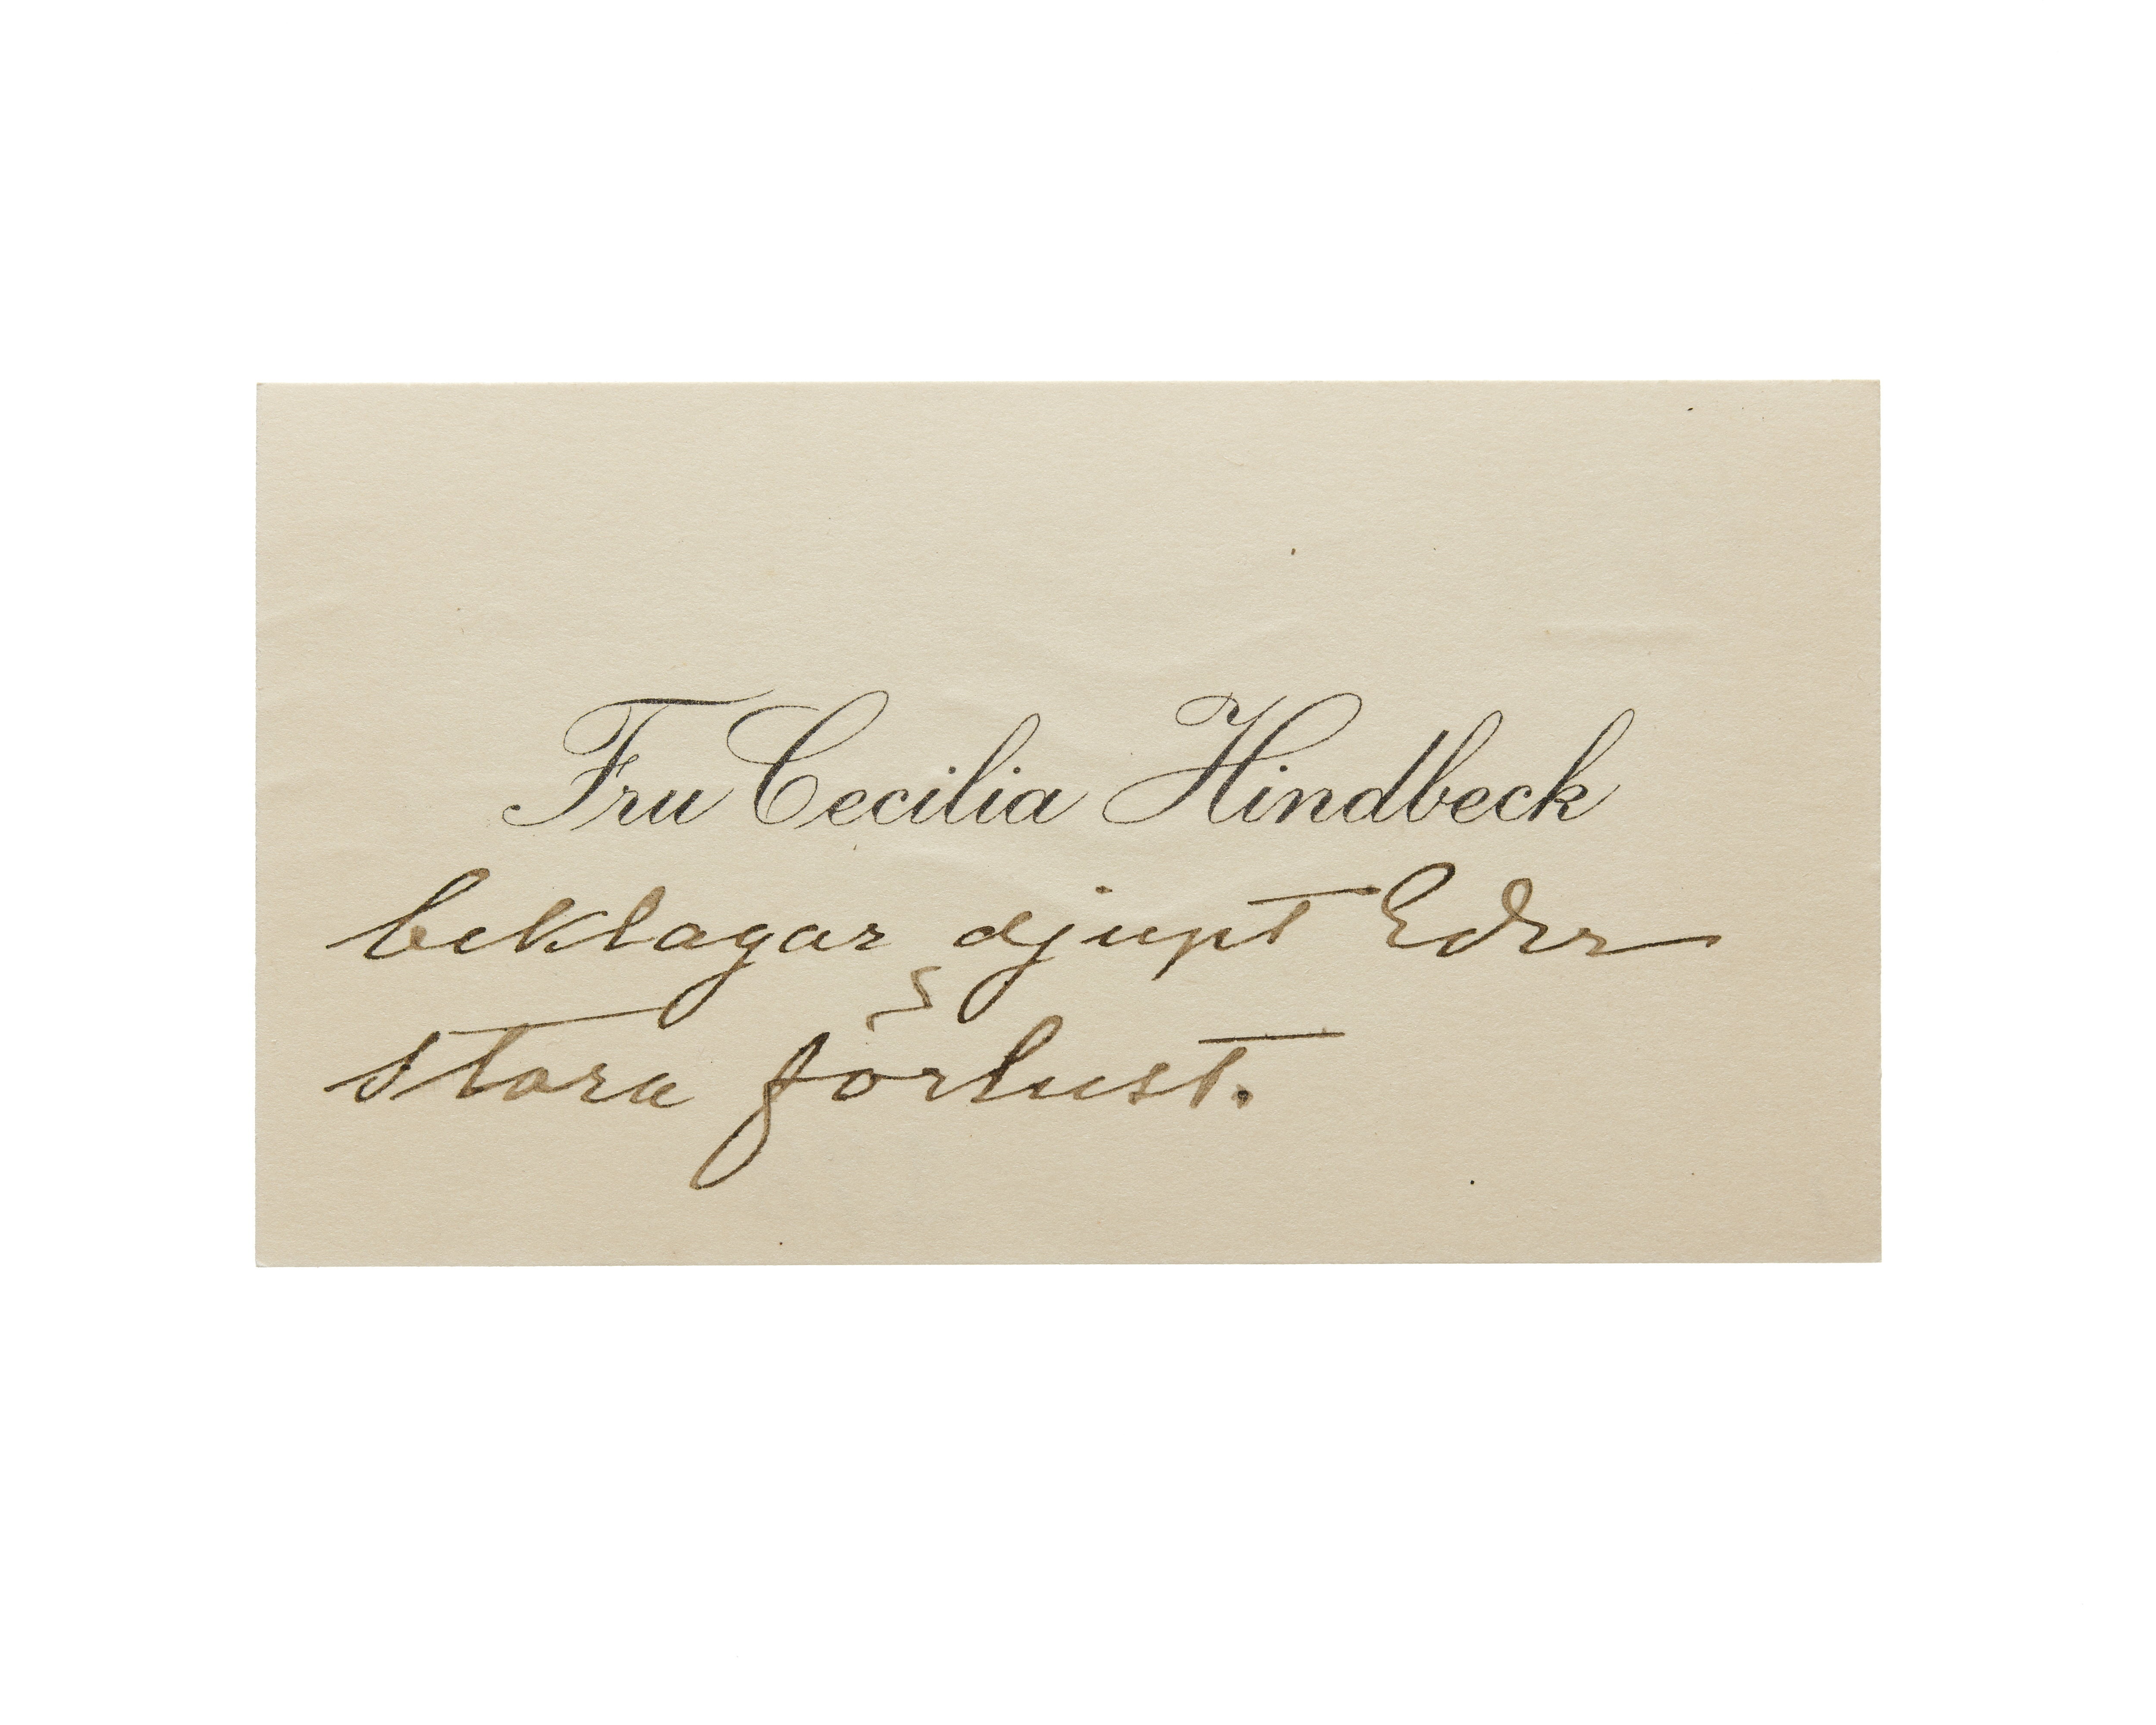 Fru Cecilia Hindbeck
beklagar djupt Eder
stora förlust.